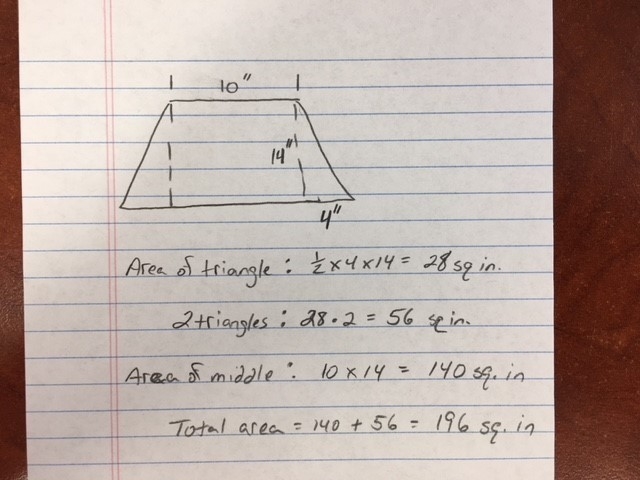 10"
14"
4"
Area of triangle: ½ x 4 x 14 = 28 sq in.
2 triangles: 28 · 2 = 56 sq in.
Area of middle: 10 x 14 = 140 sq. in
Total area = 140 + 56 = 196 sq. in